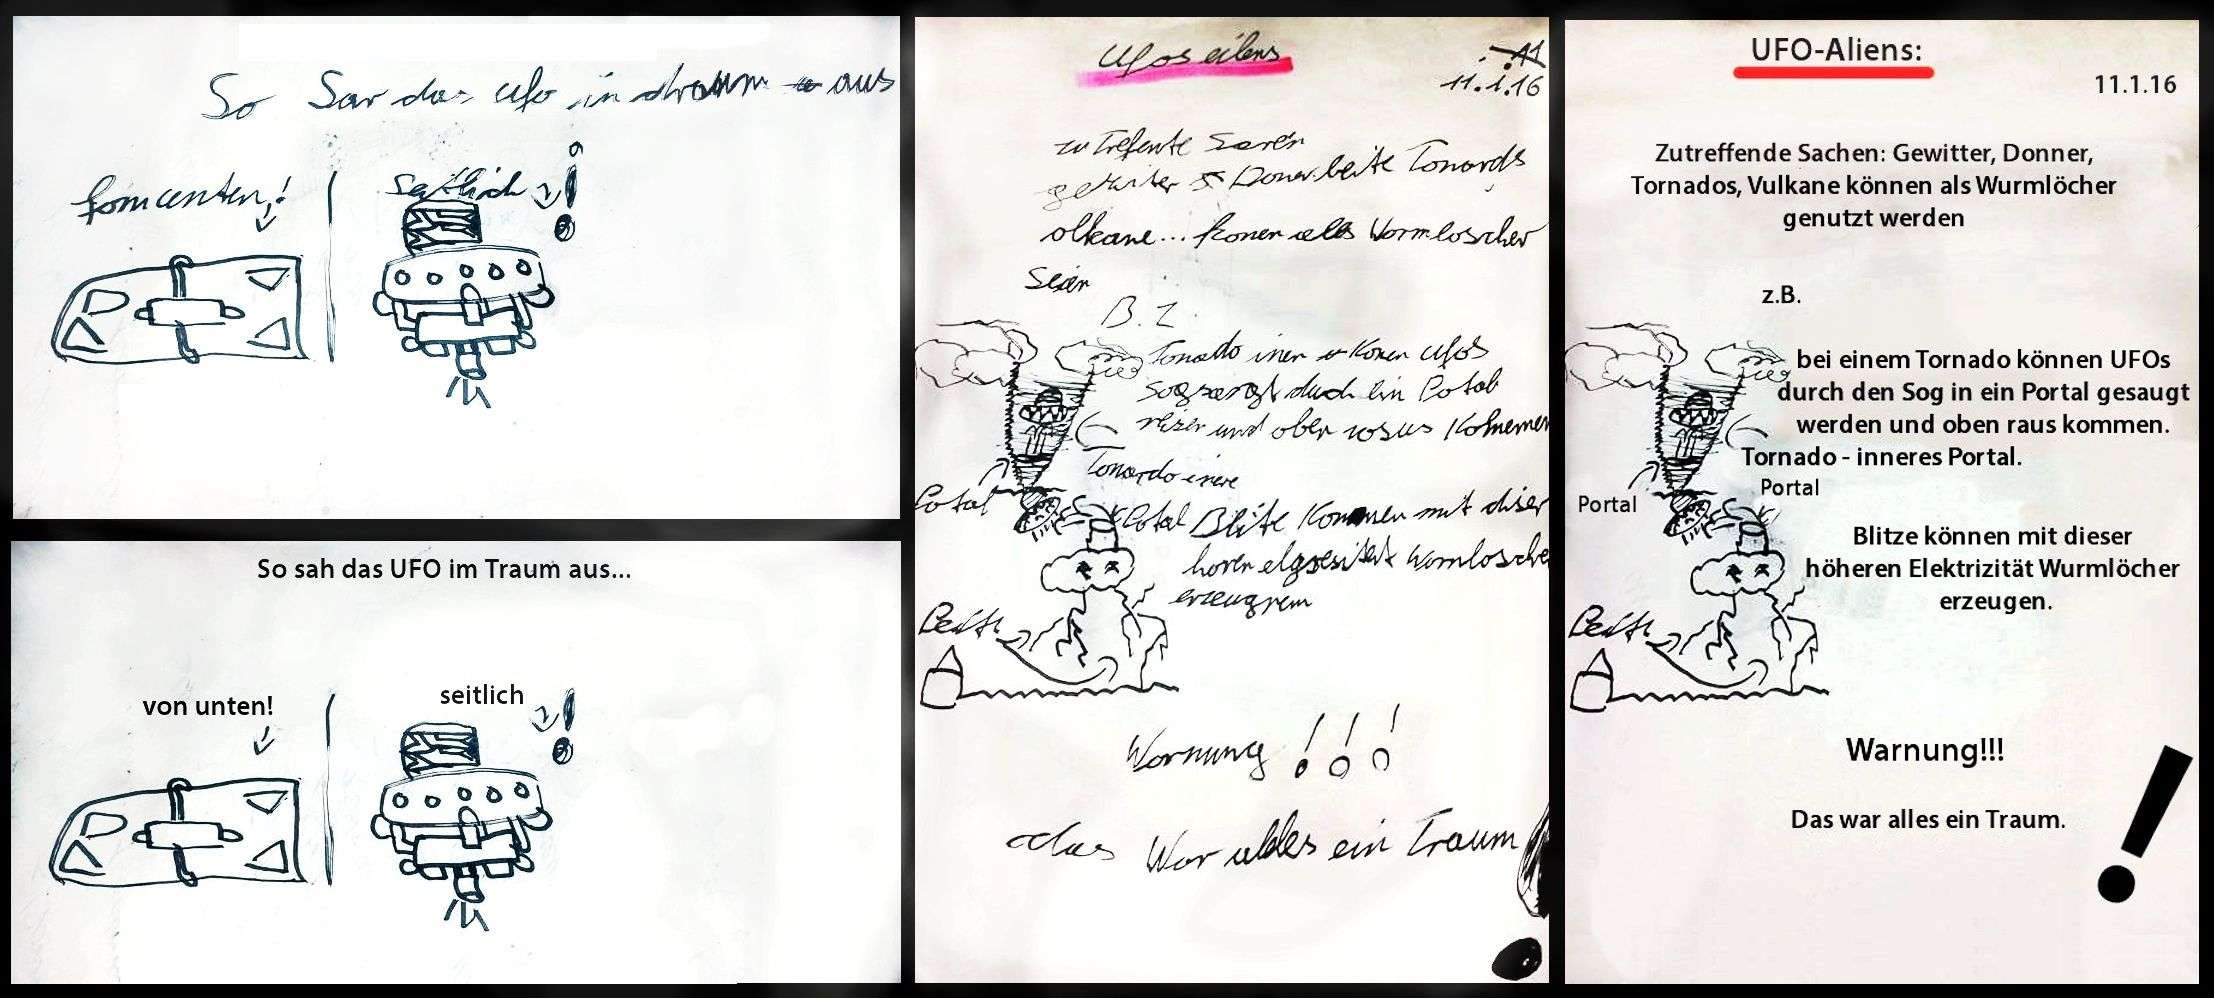 So Sar das ufo in draum aus
fomcenten!
Seitlich
So sah das UFO im Traum aus...
von unten!
seitlich
Ufos eilens
11.1.16
zu Trefente Saren
gewiter Doner beite Tonards
olkane... konen als Wormloscher
Seien
B. Z.
Tonatto iner Konen Ufos
durch ein Potal
und oben Kohmemen
Tonardo inere
Potal
Potal Blite Kommen mit diser
horen Wormlosche
erzeugrem
Wornung !!!
das War alles ein Traum
UFO-Aliens:
11.1.16
Zutreffende Sachen: Gewitter, Donner,
Tornados, Vulkane können als Wurmlöcher
genutzt werden
z.B.
bei einem Tornado können UFOs
durch den Sog in ein Portal gesaugt
werden und oben raus kommen.
Tornado - inneres Portal.
Portal
Portal
Blitze können mit dieser
höheren Elektrizität Wurmlöcher
erzeugen.
Warnung!!!
Das war alles ein Traum.
!